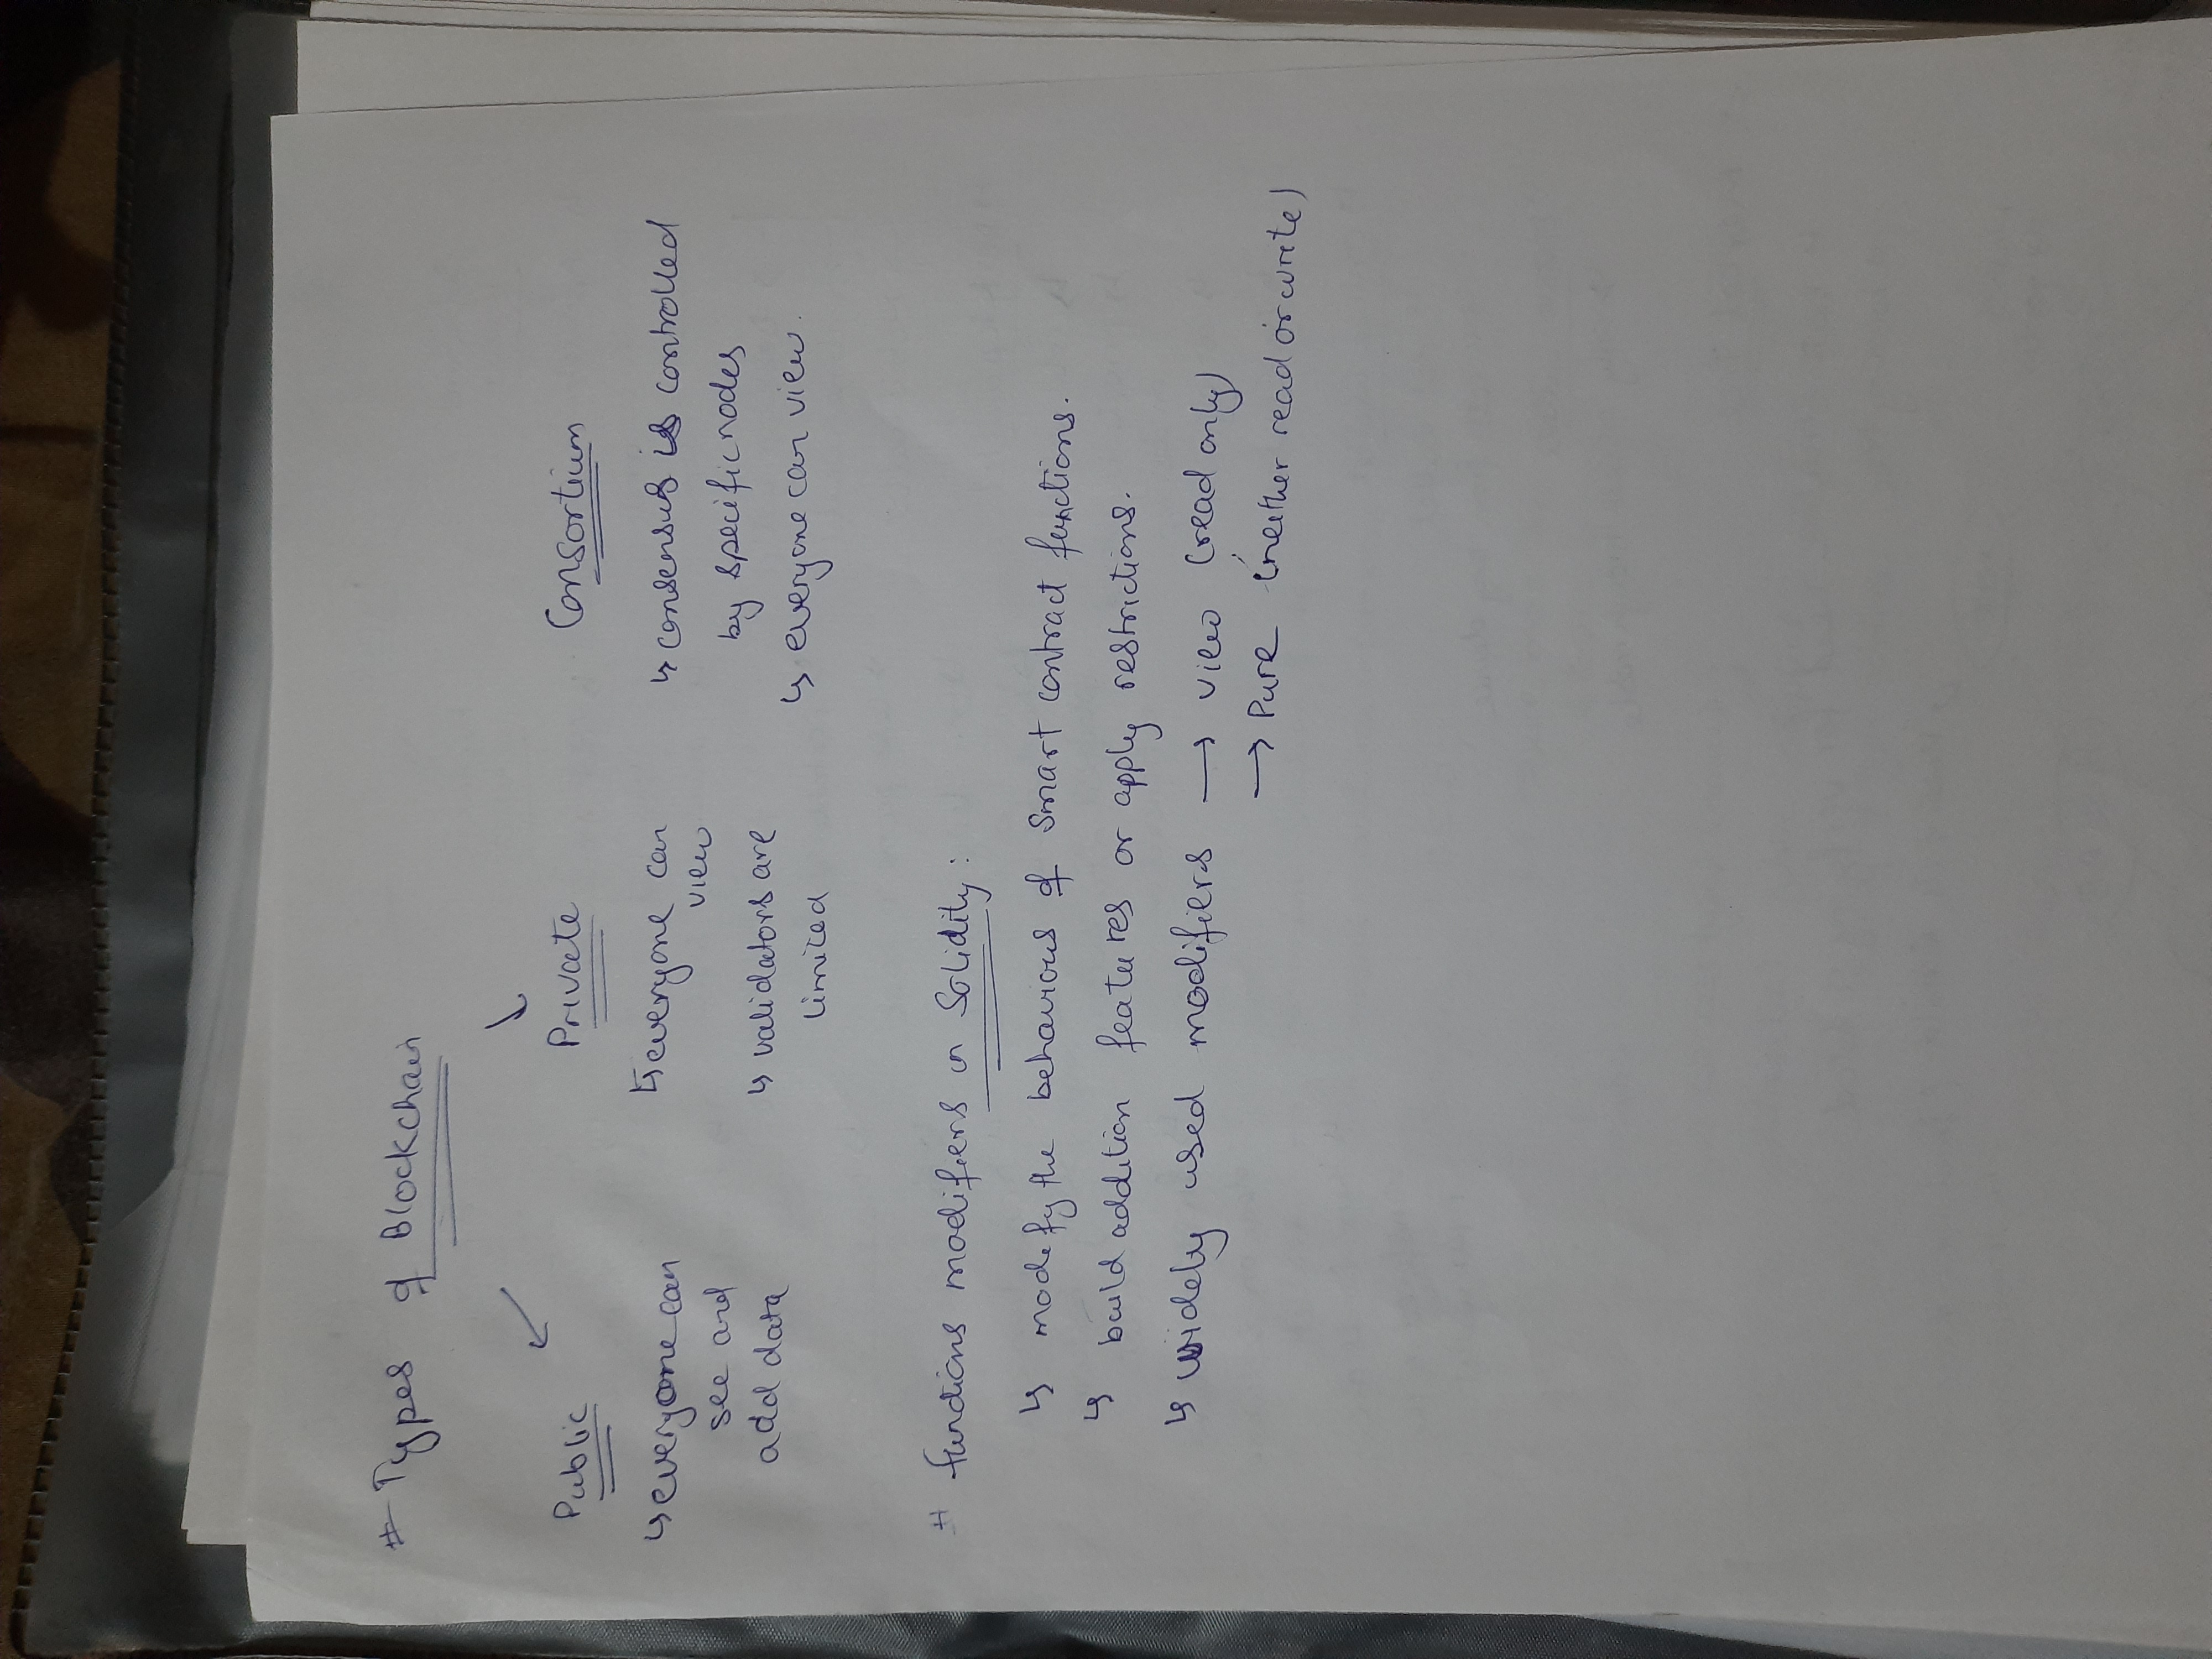 # Types of Blockchain
Public
↳ everyone can
see and
add data
Private
↳ everyone can
view
↳ validators are
limited
Consortium
↳ consensus is controlled
by specific nodes
↳ everyone can view.
# functions modifiers in Solidity:
↳ modify the behaviour of smart contract functions.
↳ build addition features or apply restrictions.
↳ widely used modifiers → view (read only)
→ Pure (neither read or write)